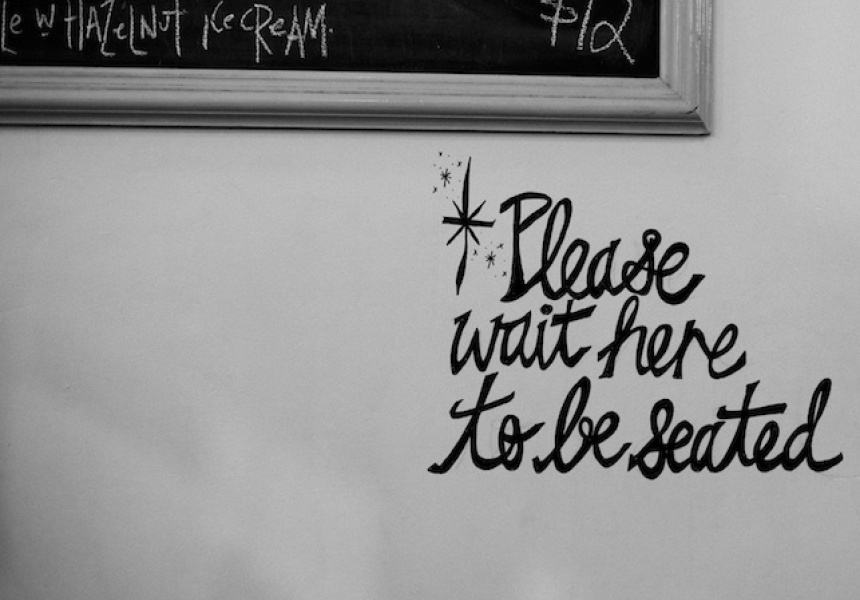 w HAZeLNuT iCe CReAM. $12
Please
wait here
to be seated